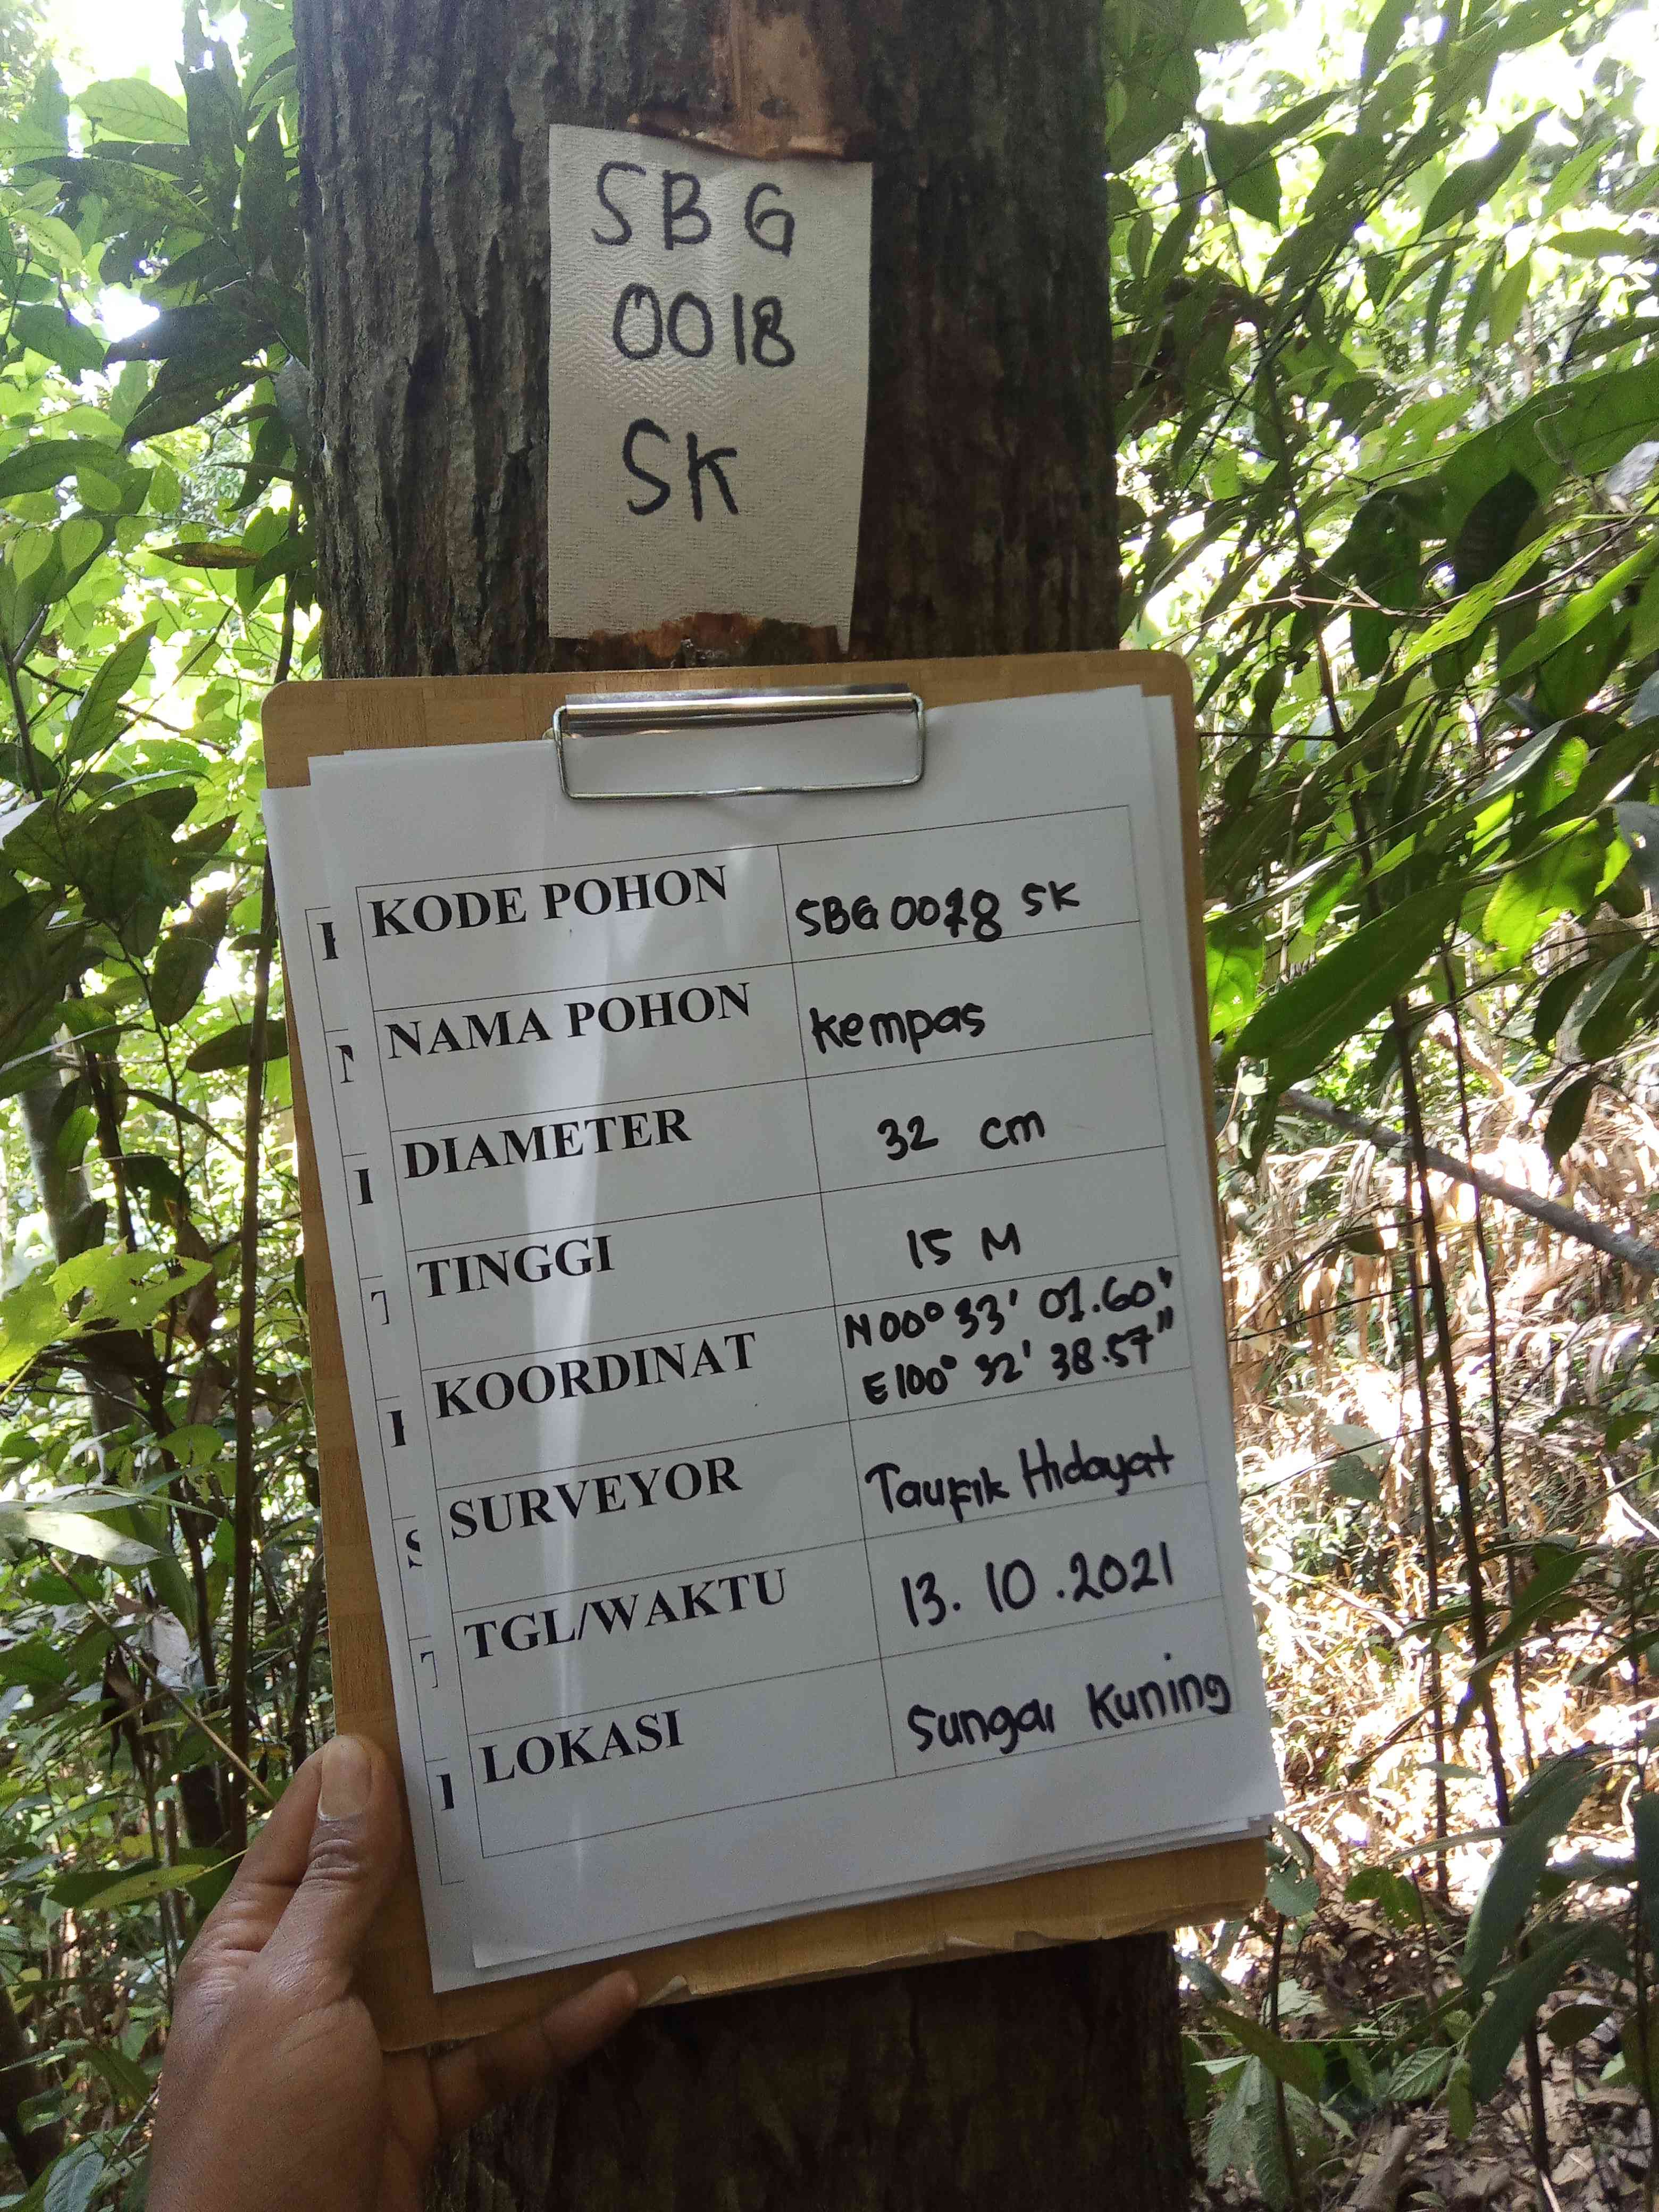 SBG
0018
SK
KODE POHON SBG 0018 SK
NAMA POHON Kempas
DIAMETER 32 cm
TINGGI 15 M
KOORDINAT N 00° 33' 01.60"
E 100° 32' 38.57"
SURVEYOR Taufik Hidayat
TGL/WAKTU 13.10.2021
LOKASI Sungai Kuning